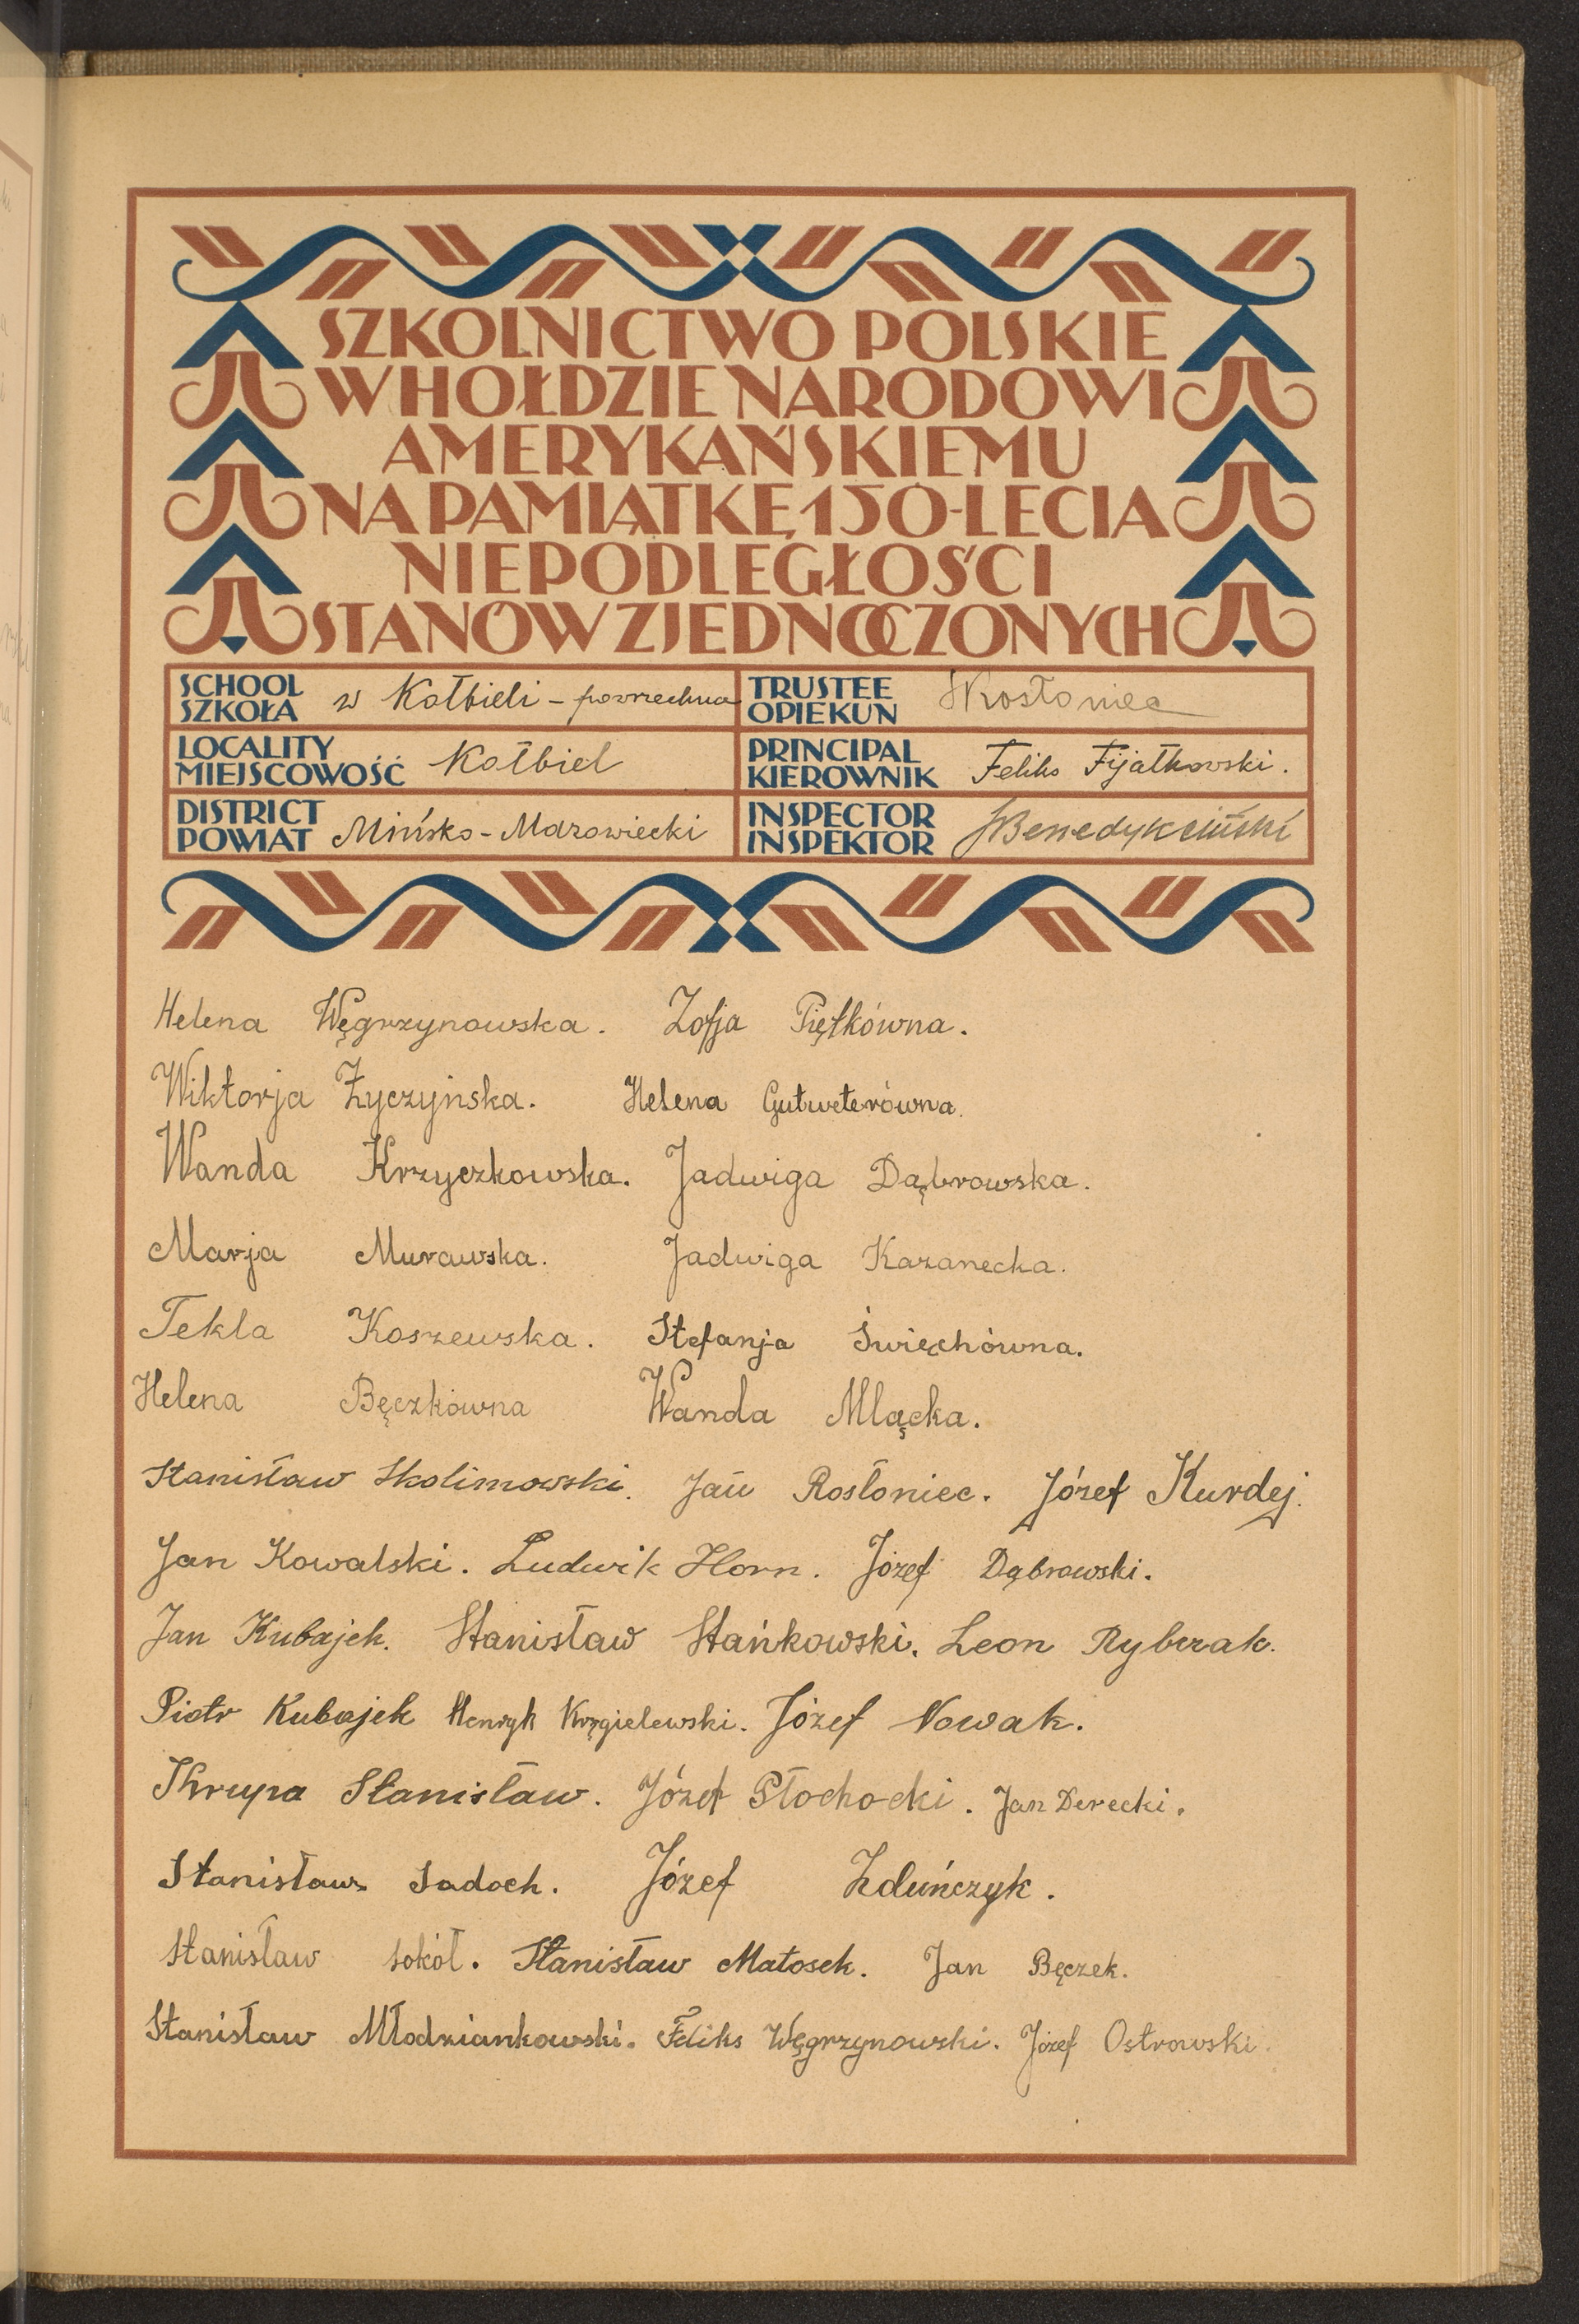 SZKOLNICTWO POLSKIE
W HOŁDZIE NARODOWI
AMERYKAŃSKIEMU
NA PAMIĄTKĘ 150-LECIA
NIEPODLEGŁOŚCI
STANÓW ZJEDNOCZONYCH
SCHOOL SZKOŁA w Kołbieli - powszechna
TRUSTEE OPIEKUN
LOCALITY MIEJSCOWOŚĆ Kołbiel
PRINCIPAL KIEROWNIK Feliks Fijałkowski.
DISTRICT POWIAT Mińsko-Mazowiecki
INSPECTOR INSPEKTOR
Helena Węgrzynowska. Zofja Piętkówna.
Wiktorja Życzyńska. Helena Gutweterówna.
Wanda Krzyczkowska. Jadwiga Dąbrowska.
Marja Murawska. Jadwiga Kazanecka.
Tekla Koszewska. Stefanja Święchówna.
Helena Bęczkówna Wanda Mlącka.
Stanisław Skolimowski. Jan Rosłoniec. Józef Kurdej.
Jan Kowalski. Ludwik Horn. Józef Dąbrowski.
Jan Kubajek. Stanisław Stańkowski. Leon Rybczak.
Piotr Kubajek Henryk Kręgielewski. Józef Nowak.
Skrupa Stanisław. Józef Płochocki. Jan Derecki.
Stanisław Sadoch. Józef Zduńczyk.
Stanisław Sokół. Stanisław Matosek. Jan Bęczek.
Stanisław Młodziankowski. Feliks Węgrzynowski. Józef Ostrowski.